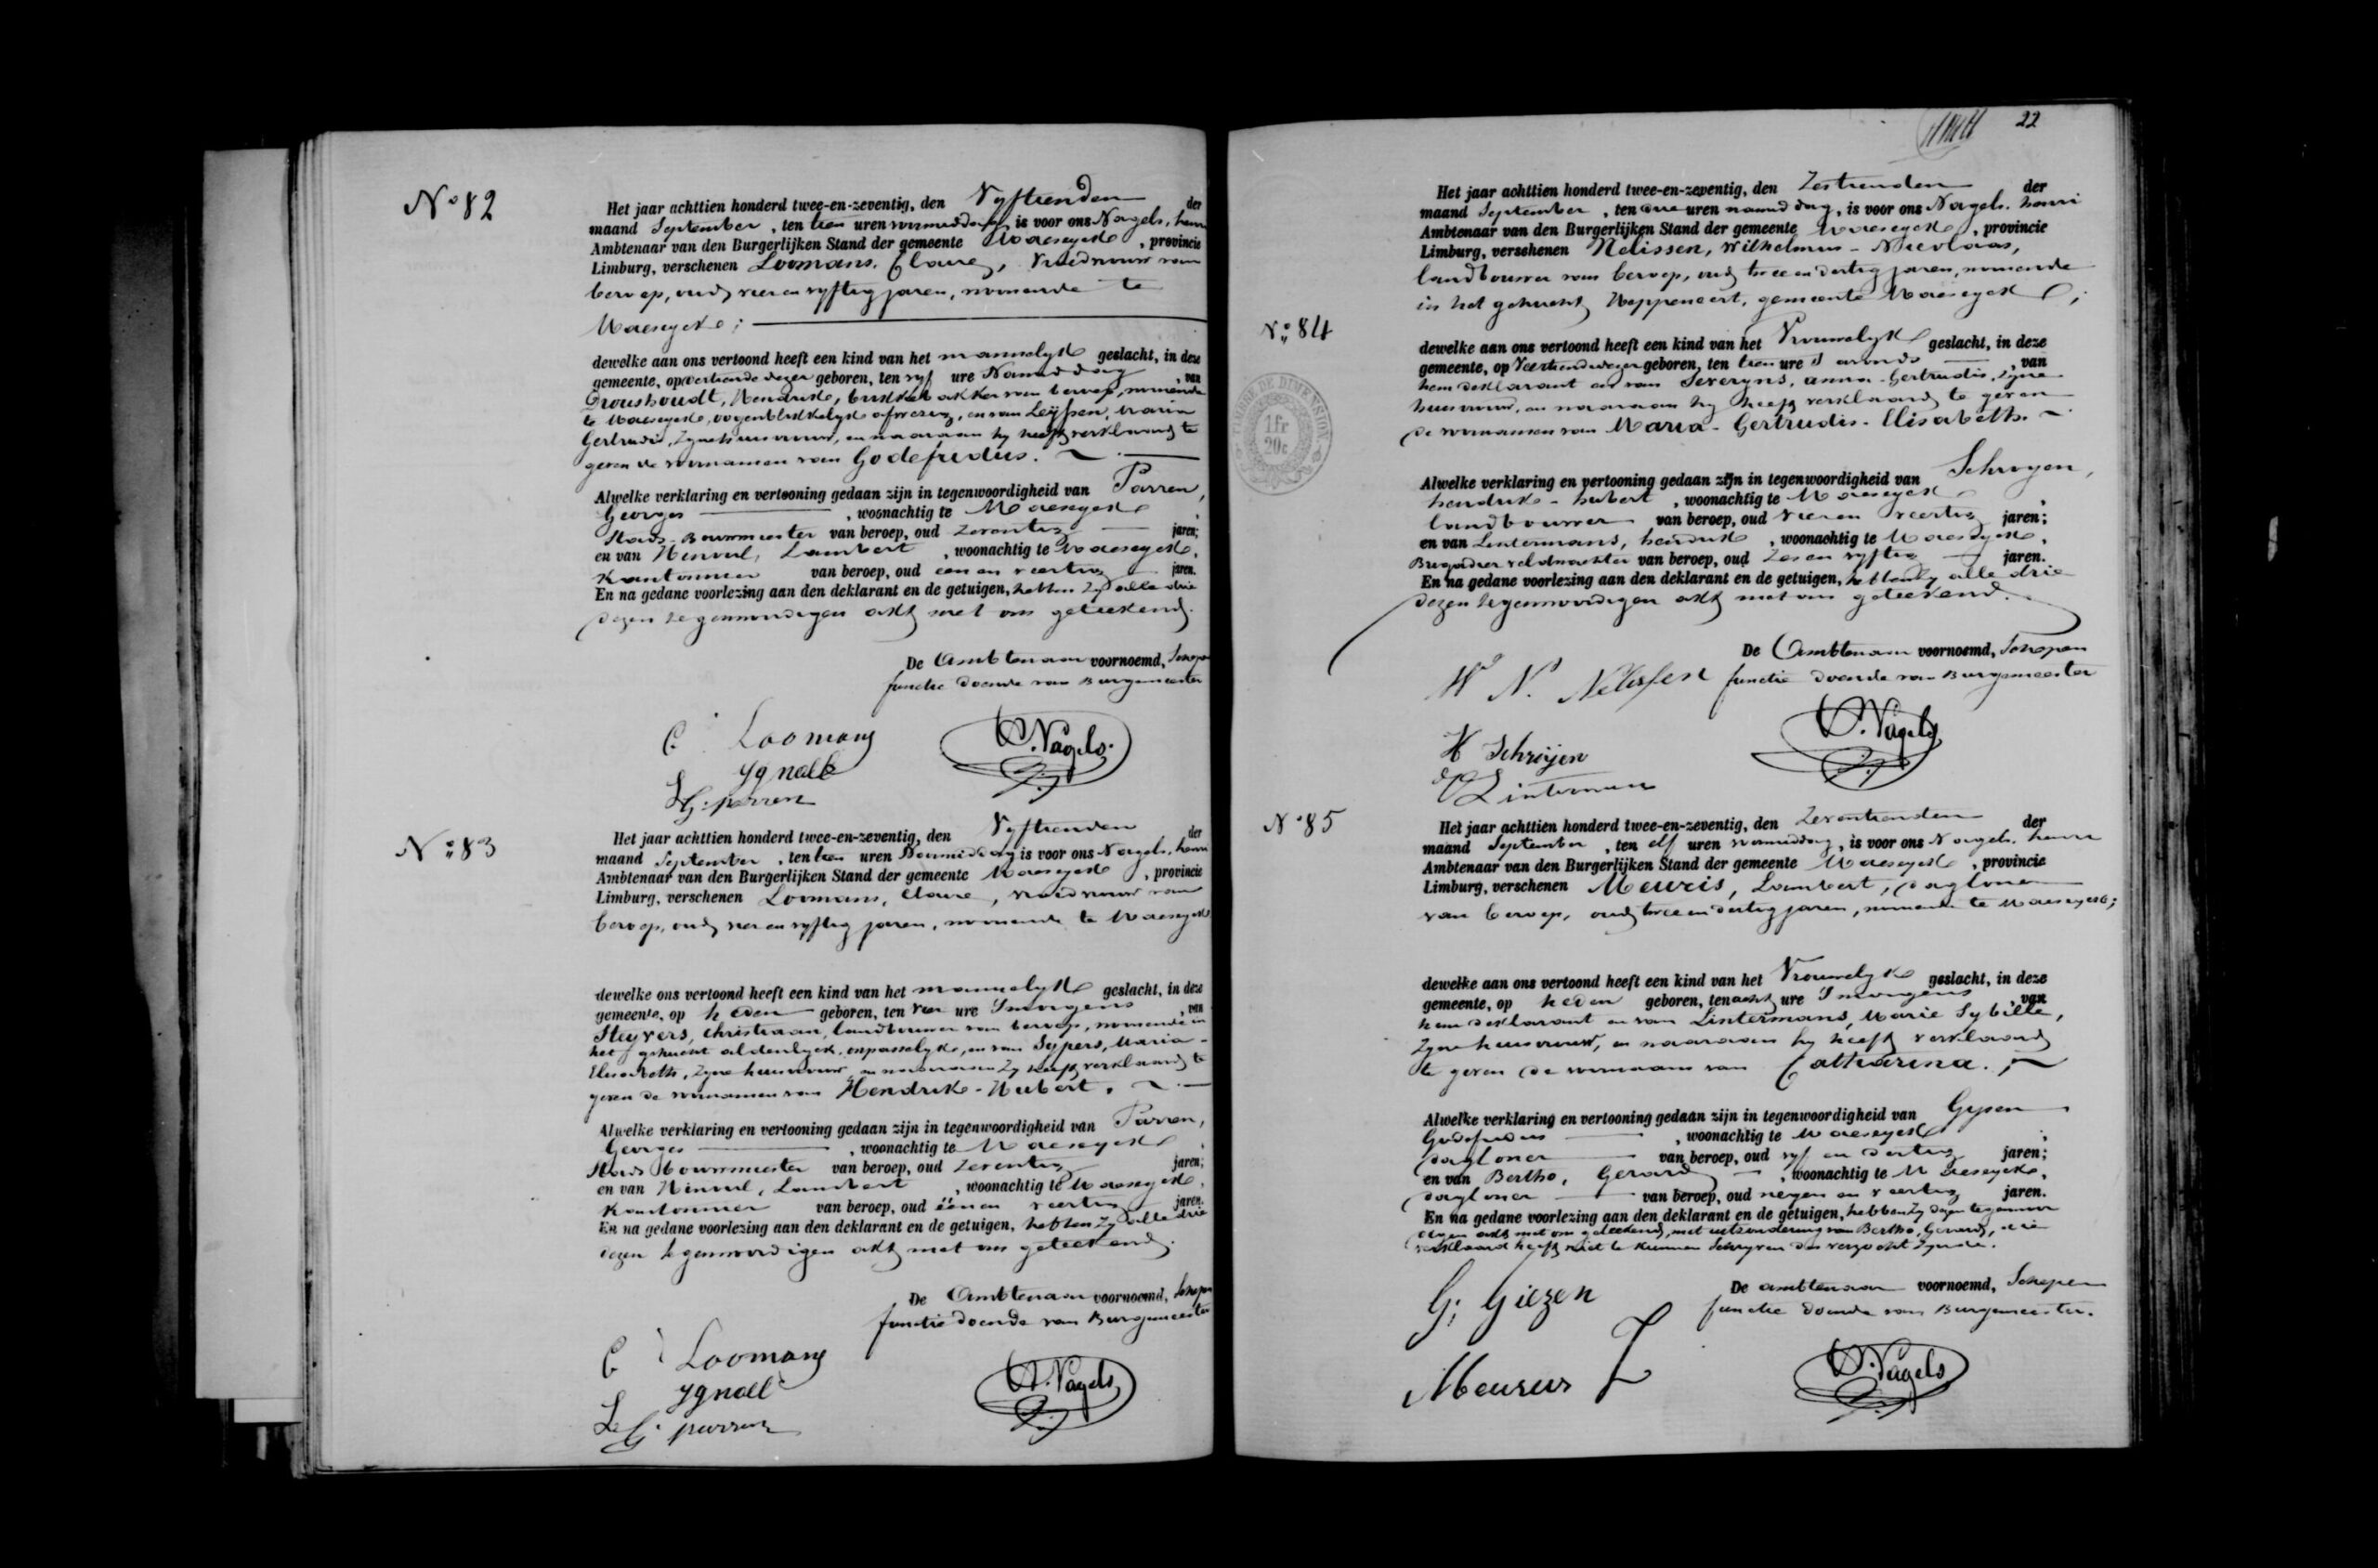 N° 82
Het jaar achttien honderd twee-en-zeventig, den Vyftienden der
maand September, ten tien uren voormiddag, is voor ons Nagels, henri
Ambtenaar van den Burgerlijken Stand der gemeente Maeseyck, provincie
Limburg, verschenen Loomans, Claire, Vroedvrouw van
beroep, oud vier en vyftig jaren, woonende te
Maeseyck;
dewelke aan ons vertoond heeft een kind van het mannelyk geslacht, in deze
gemeente, op veertiende dezer geboren, ten vyf ure Namiddag, van
Droushoudt, Hendrik, bakker van beroep, woonende
te Maeseyck, oogenblikkelyk afwezig, en van Leyssen, Maria
Gertrudis, zyne huisvrouw, en waaraan hy heeft verklaard te
geven de voornamen van Godefridus.
Alwelke verklaring en vertooning gedaan zijn in tegenwoordigheid van Parren,
Georges, woonachtig te Maeseyck,
Stads-Bouwmeester van beroep, oud zeventig jaren;
en van Lambert, woonachtig te Maeseyck,
Kantonnier van beroep, oud een en veertig jaren.
En na gedane voorlezing aan den deklarant en de getuigen, hebben zy alle drie
dezen tegenwoordigen akt met ons geteekend.
De Ambtenaar voornoemd, Schepen
functie doende van Burgemeester
C. Loomans
H. Nagels.
L
G. parren
N° 83
Het jaar achttien honderd twee-en-zeventig, den Vyftienden der
maand September, ten tien uren Voormiddag is voor ons Nagels, henri
Ambtenaar van den Burgerlijken Stand der gemeente Maeseyck, provincie
Limburg, verschenen Loomans, Claire, vroedvrouw van
beroep, oud vier en vyftig jaren, woonende te Maeseyck
dewelke ons vertoond heeft een kind van het mannelyk geslacht, in deze
gemeente, op heden geboren, ten vier ure Smorgens, van
Steyvers, Christiaan, landbouwer van beroep, woonende in
het gehucht aldeneyck, onpasselyk, en van Sypers, Maria-
Elisabeth, zyne huisvrouw, en waaraan zy heeft verklaard te
geven de voornamen van Hendrik-Hubert.
Alwelke verklaring en vertooning gedaan zijn in tegenwoordigheid van Parren,
Georges, woonachtig te Maeseyck,
Stads Bouwmeester van beroep, oud zeventig jaren;
en van Lambert, woonachtig te Maeseyck,
Kantonnier van beroep, oud één en veertig jaren.
En na gedane voorlezing aan den deklarant en de getuigen, hebben zy alle drie
dezen tegenwoordigen akt met ons geteekend.
De Ambtenaar voornoemd, Schepen
functie doende van Burgemeester
C Loomans
H. Nagels
L
G. parren
22
TIMBRE DE DIMENSION
1 fr
20c
N° 84
Het jaar achttien honderd twee-en-zeventig, den Zestienden der
maand September, ten drie uren namiddag, is voor ons Nagels, henri
Ambtenaar van den Burgerlijken Stand der gemeente Maeseyck, provincie
Limburg, verschenen Nelissen, Wilhelmus-Nicolaas,
landbouwer van beroep, oud twee en dertig jaren, woonende
in het gehucht Heppeneert, gemeente Maeseyck;
dewelke aan ons vertoond heeft een kind van het Vrouwelyk geslacht, in deze
gemeente, op Veertiendezer geboren, ten tien ure S avonds, van
hem deklarant en van Severyns, anna-Gertrudis, zyne
huisvrouw, en waaraan hy heeft verklaard te geven
de voornamen van Maria-Gertrudis-Elisabeth.
Alwelke verklaring en vertooning gedaan zijn in tegenwoordigheid van Schroyen,
hendrik-hubert, woonachtig te Maeseyck,
landbouwer van beroep, oud vier en veertig jaren;
en van Lintermans, hendrik, woonachtig te Maeseyck,
Brigadier veldwachter van beroep, oud zes en vyftig jaren.
En na gedane voorlezing aan den deklarant en de getuigen, hebben zy alle drie
dezen tegenwoordigen akt met ons geteekend.
De Ambtenaar voornoemd, Schepen
functie doende van Burgemeester
W N. Nelissen
H. Nagels
H Schroijen
H Linterman
N° 85
Het jaar achttien honderd twee-en-zeventig, den Zeventienden der
maand September, ten elf uren voormiddag, is voor ons Nagels, henri
Ambtenaar van den Burgerlijken Stand der gemeente Maeseyck, provincie
Limburg, verschenen Meuris, Lambert, dagloner
van beroep, oud twee en dertig jaren, woonende te Maeseyck;
dewelke aan ons vertoond heeft een kind van het Vrouwelyk geslacht, in deze
gemeente, op heden geboren, ten acht ure Smorgens, van
hem deklarant en van Lintermans, Marie Sybille,
zyne huisvrouw, en waaraan hy heeft verklaard
te geven de voornaam van Catharina.
Alwelke verklaring en vertooning gedaan zijn in tegenwoordigheid van Gysen
Godefridus, woonachtig te Maeseyck,
dagloner van beroep, oud vyf en dertig jaren;
en van Bertho, Gerard, woonachtig te Maeseyck,
dagloner van beroep, oud negen en veertig jaren.
En na gedane voorlezing aan den deklarant en de getuigen, hebben zy dezen tegenwoor
digen akt met ons geteekend, met uitzondering van Bertho, Gerard, die
verklaard heeft niet te kunnen schryven des verzocht zynde.
De ambtenaar voornoemd, Schepen
functie doende van Burgemeester.
G. Giezen
Meurus L
H. Nagels